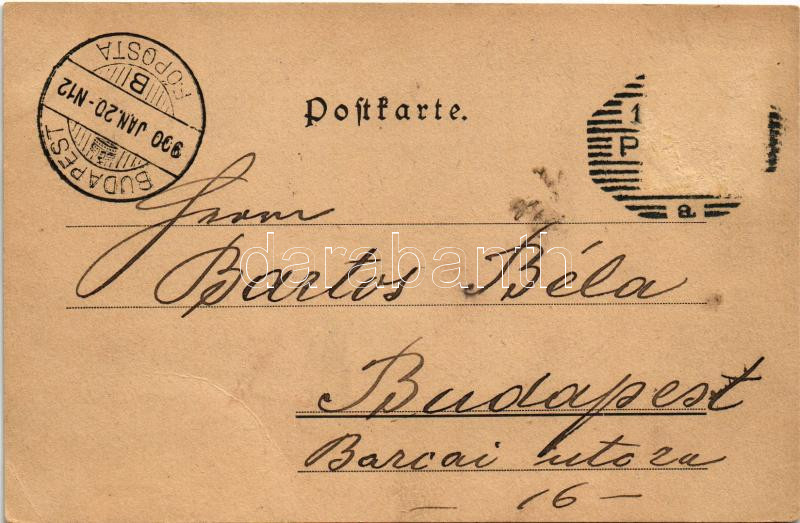 BUDAPEST
900 JAN.20-N12
B
FŐPOSTA
Postkarte.
1
P
a.
Bartos Béla
Budapest
Barcai utcza
— 16 —
darabanth